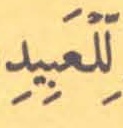 لِّلْعَبِيدِ